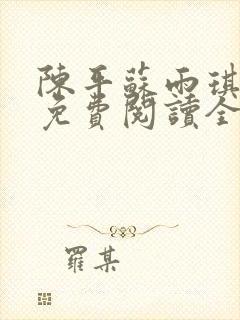 陳平蘇雨琪
免費閱讀全
羅某